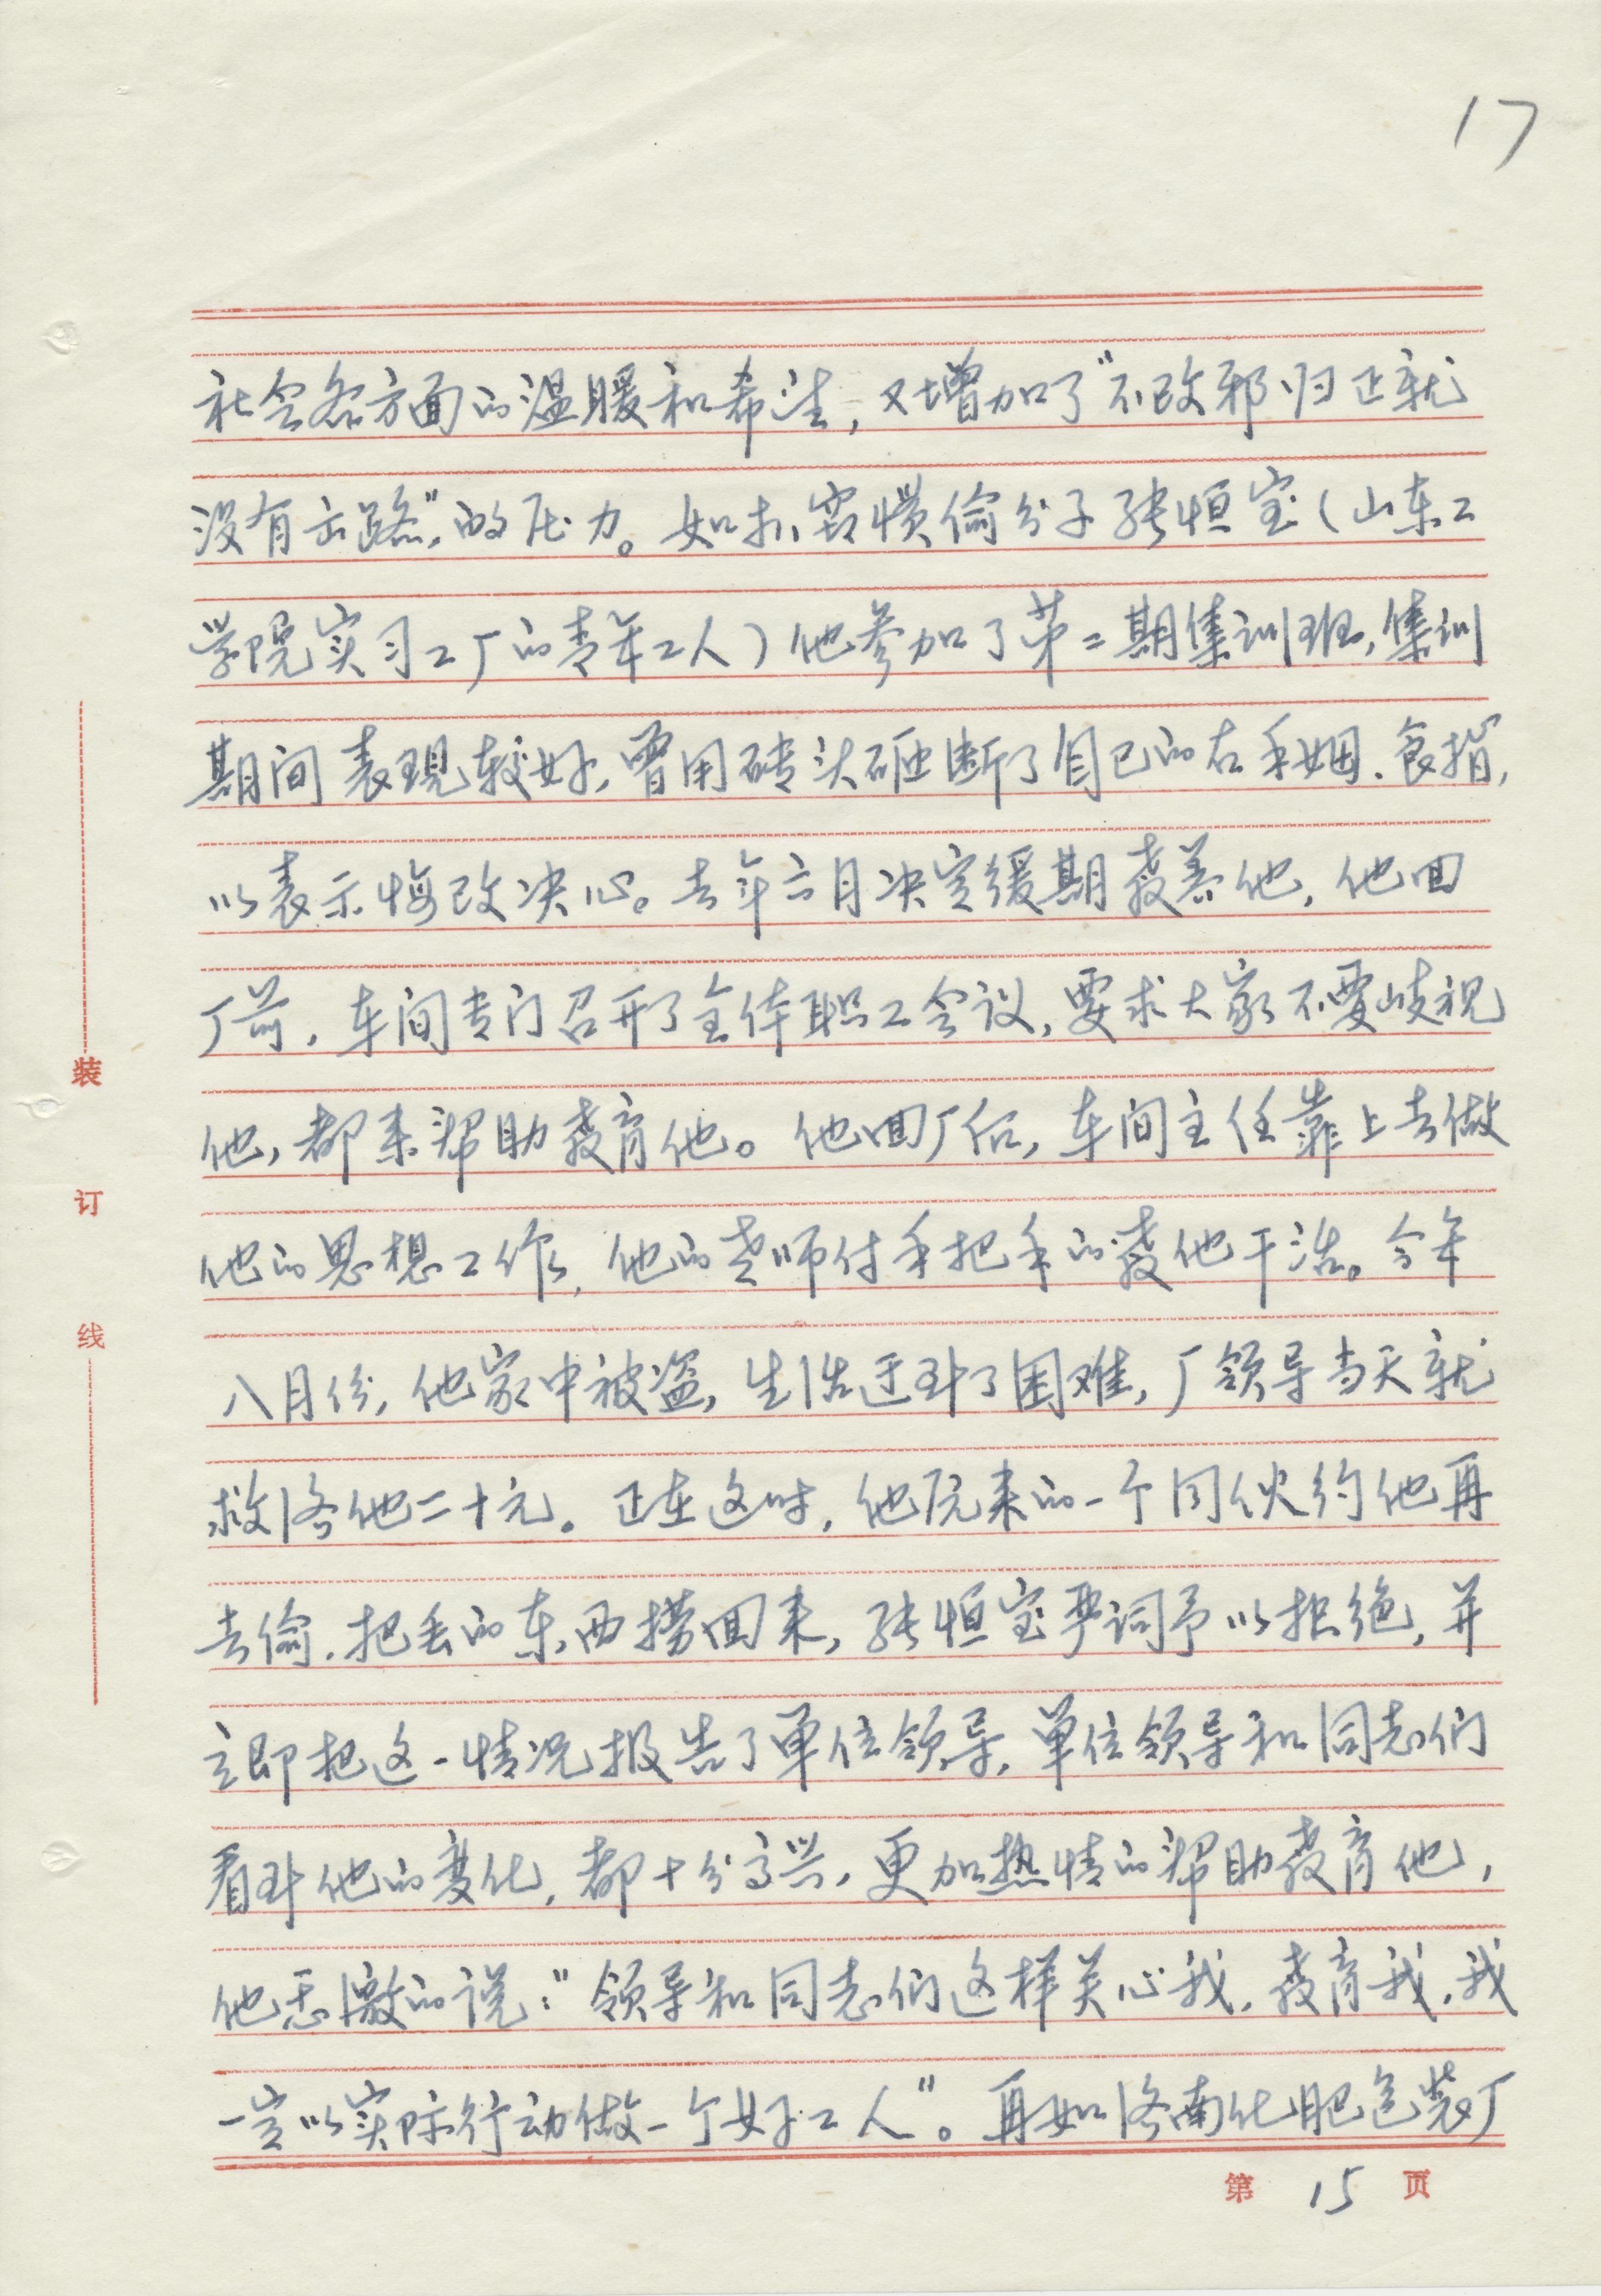 17
社会各方面的温暖和希望，又增加了“不改邪归正就
没有出路”的压力。如扒窃惯偷分子张恒宝（山东工
学院实习工厂的青年工人）他参加了第二期集训班，集训
期间表现较好，曾用砖头砸断了自己的右手姆、食指，
以表示悔改决心。去年六月决定缓期教养他，他回
厂前，车间专门召开了全体职工会议，要求大家不要岐视
他，都来帮助教育他。他回厂后，车间主任靠上去做
他的思想工作，他的老师付手把手的教他干活。今年
八月份，他家中被盗，生活遇到了困难，厂领导当天就
救济他二十元。正在这时，他原来的一个同伙约他再
去偷，把丢的东西捞回来，张恒宝严词予以拒绝，并
立即把这一情况报告了单位领导，单位领导和同志们
看到他的变化，都十分高兴，更加热情的帮助教育他，
他感激的说：“领导和同志们这样关心我，教育我，我
一定以实际行动做一个好工人”。再如济南化肥包装厂
第 15 页
装
订
线